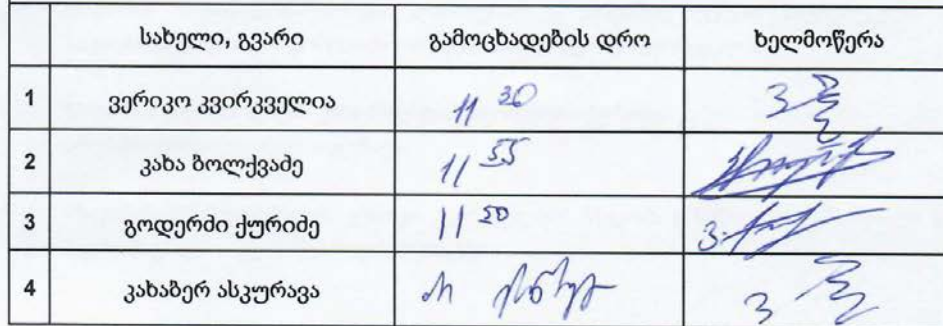 სახელი, გვარი გამოცხადების დრო ხელმოწერა
1 ვერიკო კვირკველია 11 30
2 კახა ბოლქვაძე 11 55
3 გოდერძი ქურიძე 11 50
4 კახაბერ ასკურავა არ